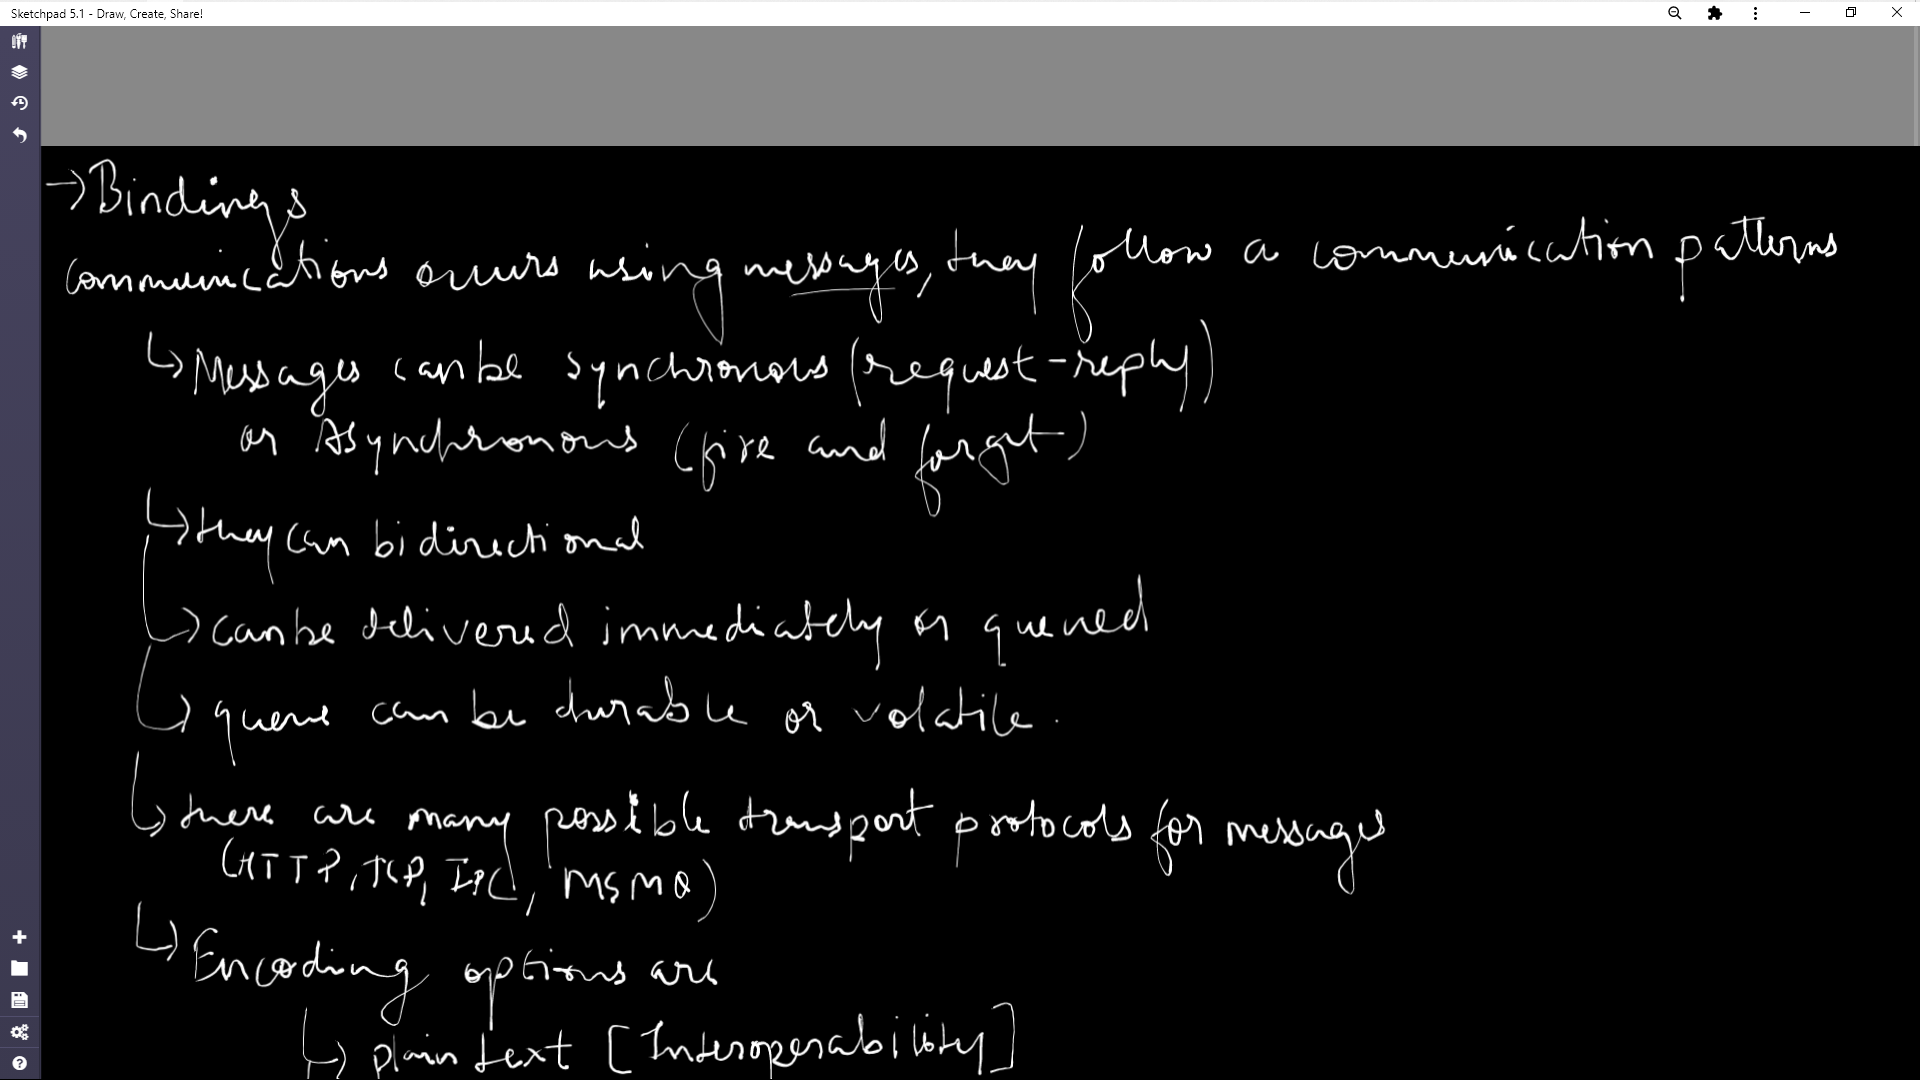 Sketchpad 5.1 - Draw, Create, Share!
→ Bindings
Communications occurs using messages, they follow a communication patterns
↳ Messages can be synchronous (request-reply)
or Asynchronous (fire and forget)
↳ they can bidirectional
↳ can be delivered immediately or queued
↳ queue can be durable or volatile.
↳ there are many possible transport protocols for messages
(HTTP, TCP, IPC, MSMQ)
↳ Encoding options are
↳ plain text [Interoperability]